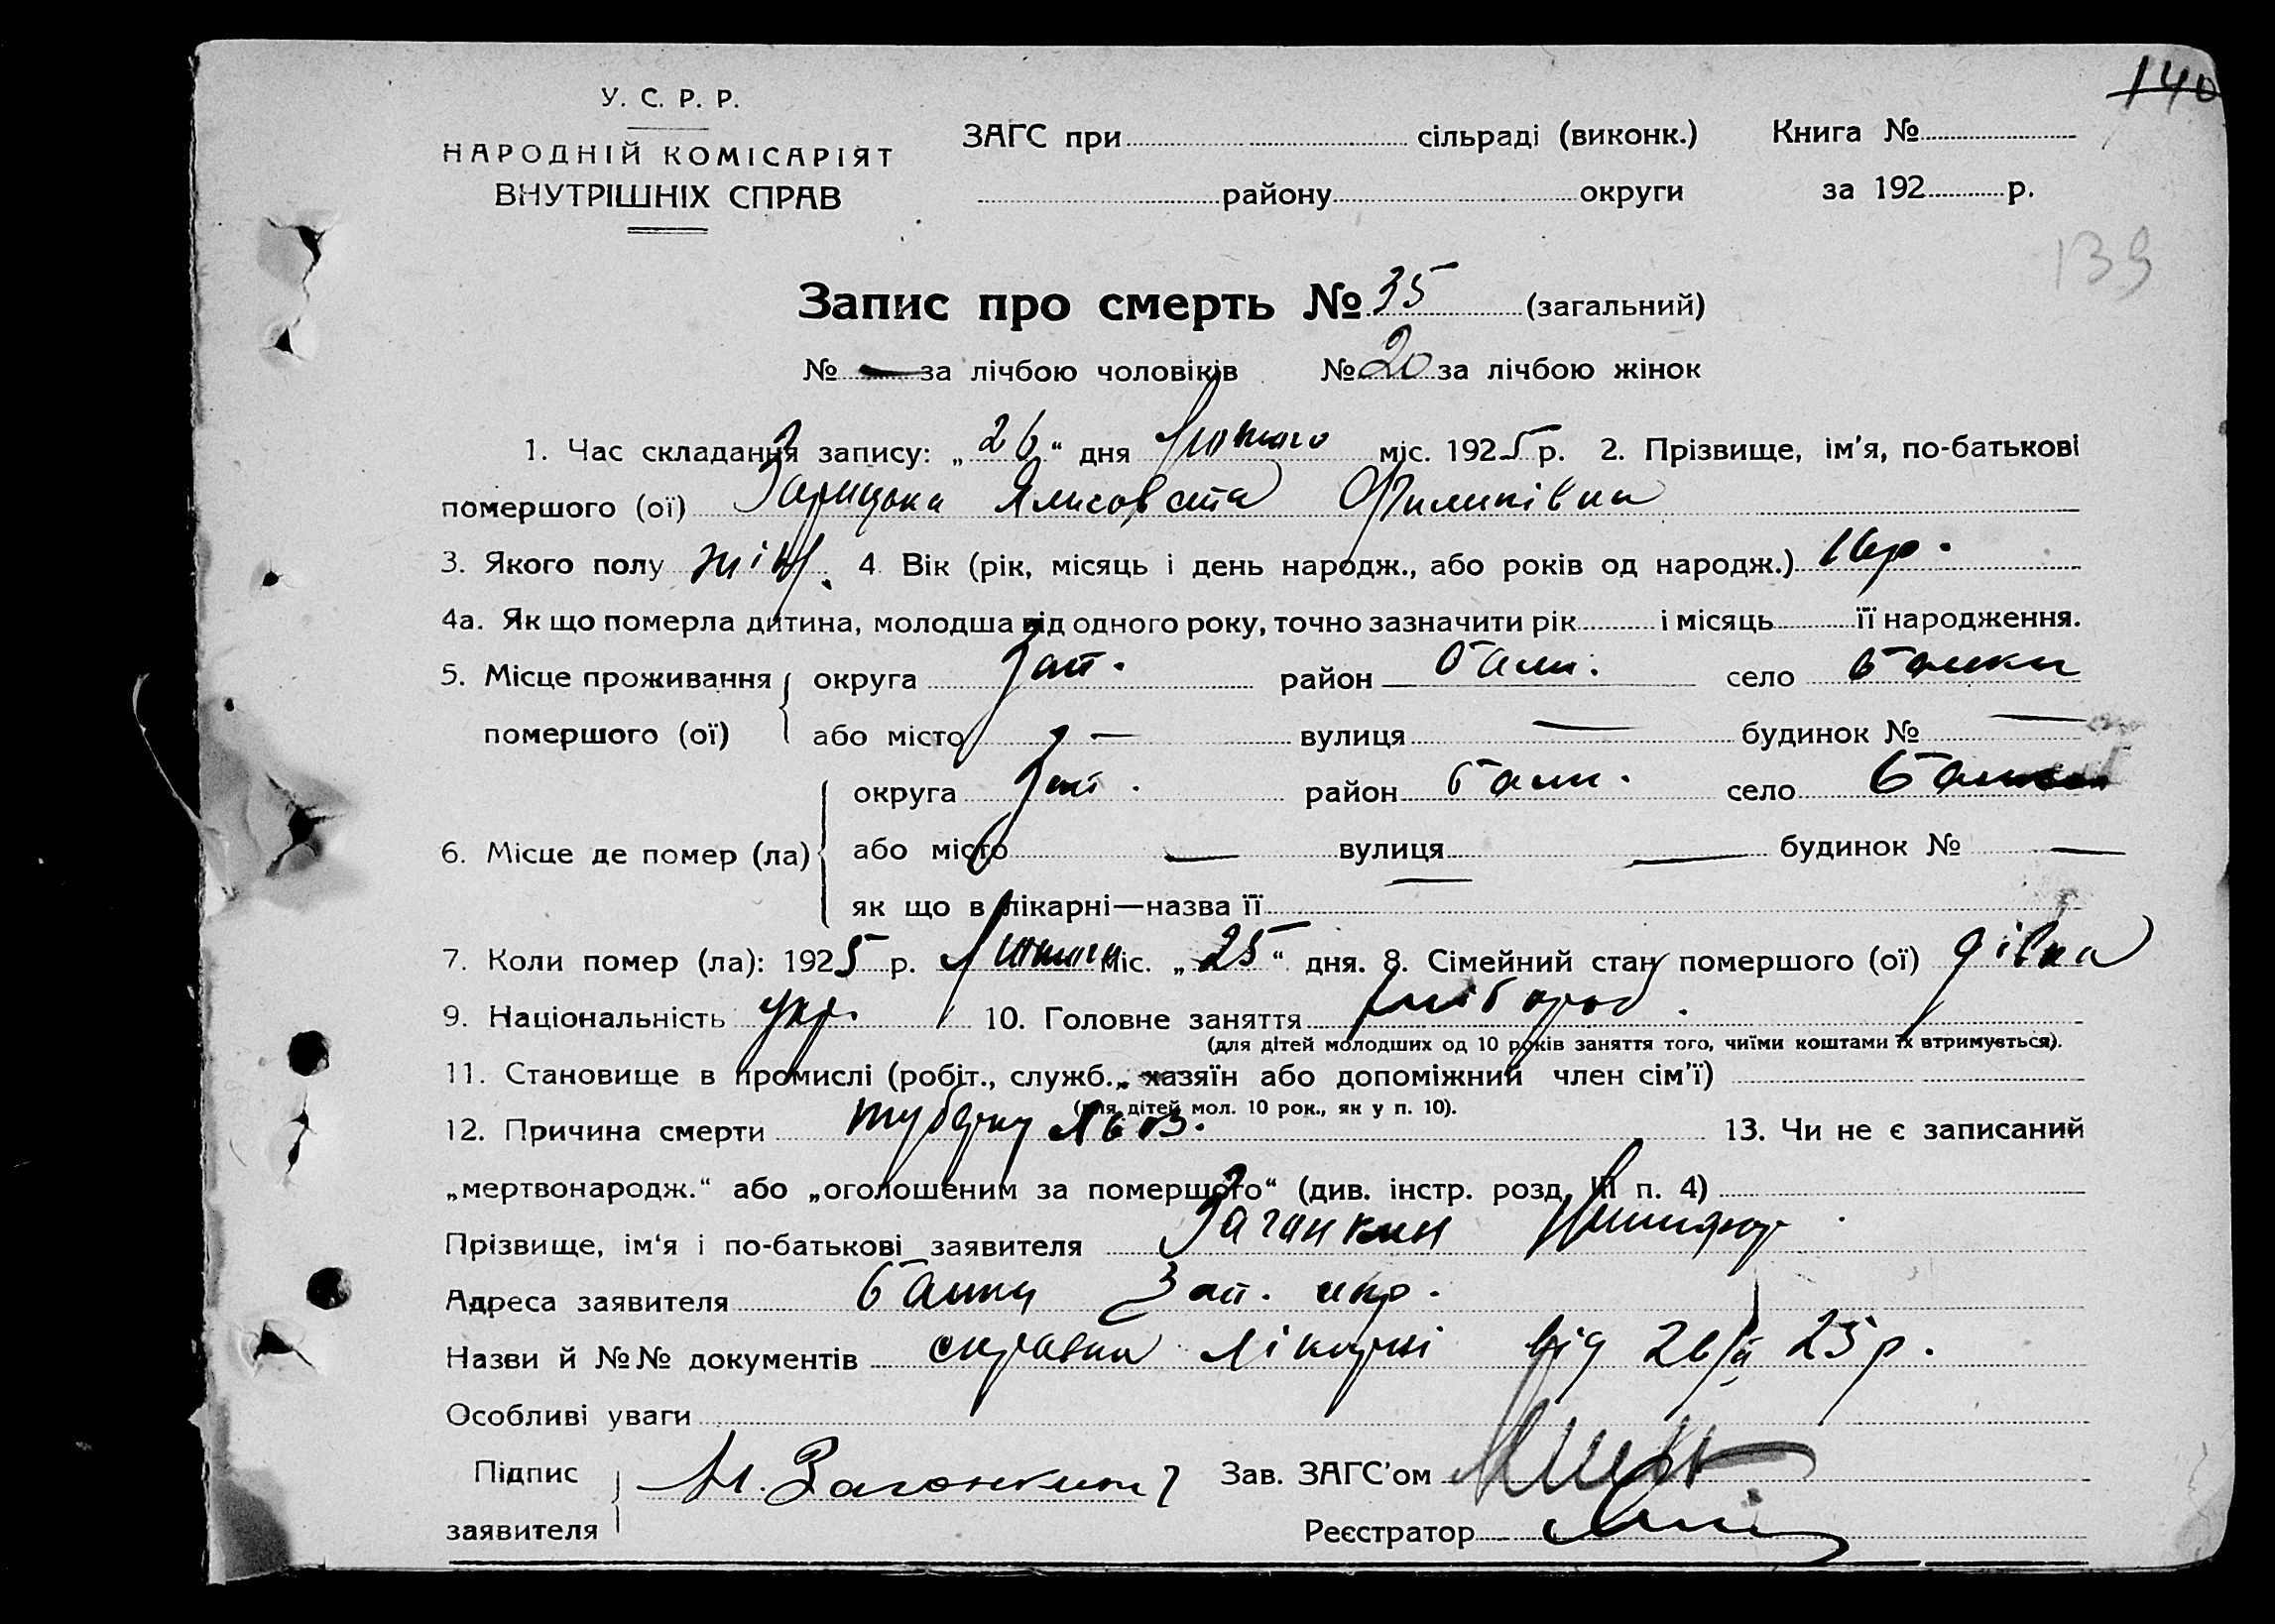 140
У. С. Р. Р.
НАРОДНІЙ КОМІСАРІЯТ
ВНУТРІШНІХ СПРАВ
ЗАГС при сільраді (виконк.) Книга №
району округи за 192 р.
139
Запис про смерть № 35 (загальний)
№ — за лічбою чоловіків № 20 за лічбою жінок
1. Час складання запису: „26“ дня Лютого міс. 1925 р. 2. Прізвище, ім'я, по-батькові
помершого (ої) Зарицька Филипівна
3. Якого полу жін. 4. Вік (рік, місяць і день народж., або років од народж.) 16 р.
4а. Як що померла дитина, молодша від одного року, точно зазначити рік і місяць її народження.
5. Місце проживання округа Зап. район Балк. село Балки
помершого (ої) або місто — вулиця — будинок № —
6. Місце де помер (ла) округа Зап. район Балк. село Балки
або місто — вулиця — будинок № —
як що в лікарні—назва її —
7. Коли помер (ла): 1925 р. Лютого міс. „25“ дня. 8. Сімейний стан помершого (ої) дівка
9. Національність укр. 10. Головне заняття хлібороб.
(для дітей молодших од 10 років заняття того, чиїми коштами їх втримується).
11. Становище в промислі (робіт., служб., хазяїн або допоміжний член сім'ї)
(для дітей мол. 10 рок., як у п. 10).
12. Причина смерти 13. Чи не є записаний
„мертвонародж.“ або „оголошеним за померщого“ (див. інстр. розд. III п. 4)
Прізвище, ім'я і по-батькові заявителя
Адреса заявителя Балки Зап. окр.
Назви й №№ документів справка лікарні від 26/II 25 р.
Особливі уваги
Підпис Зав. ЗАГС'ом
заявителя Реєстратор